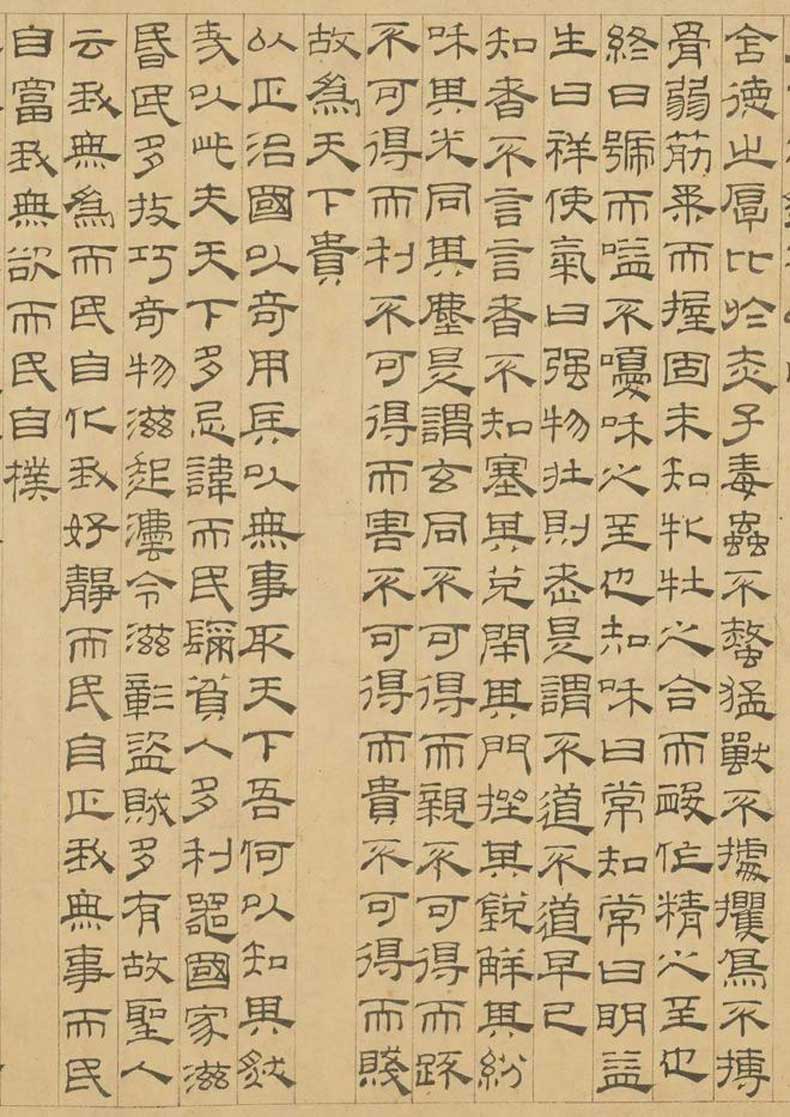 含德之厚比於赤子毒蟲不螫猛獸不據攫鳥不搏
骨弱筋柔而握固未知牝牡之合而作精之至也
終日號而嗌不嚘和之至也知和曰常知常曰明益
生曰祥使氣曰强物壯則老是謂不道不道早已
知者不言言者不知塞其兌閉其門挫其銳解其紛
和其光同其塵是謂玄同不可得而親不可得而疎
不可得而利不可得而害不可得而貴不可得而賤
故為天下貴
以正治國以奇用兵以無事取天下吾何以知其然
哉以此夫天下多忌諱而民彌貧人多利器國家滋
昬民多技巧奇物滋起灋令滋彰盜賊多有故聖人
云我無為而民自化我好靜而民自正我無事而民
自富我無欲而民自樸